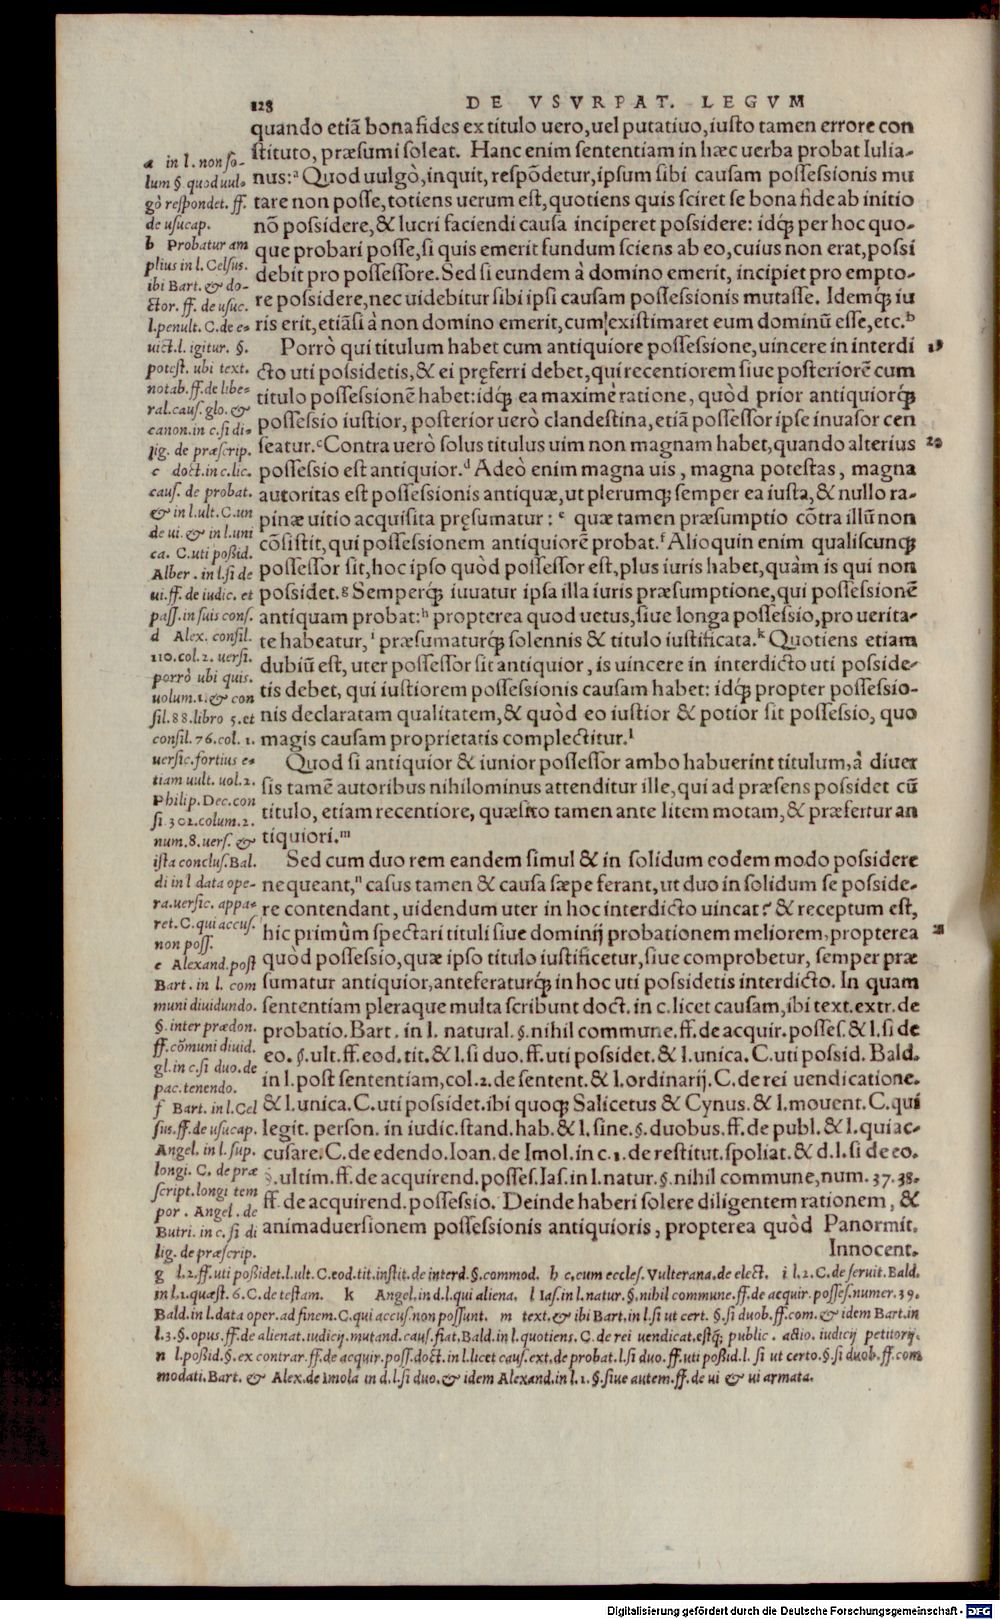 128 DE VSVRPAT. LEGVM
quando etiã bona fides ex titulo uero, uel putatiuo, iusto tamen errore con
stituto, præsumi soleat. Hanc enim sententiam in hæc uerba probat Iulia-
nus:ᵃ Quod uulgò, inquit, respõdetur, ipsum sibi causam possessionis mu
tare non posse, totiens uerum est, quotiens quis sciret se bona fide ab initio
nõ possidere, & lucri faciendi causa inciperet possidere: idq́; per hoc quo-
que probari posse, si quis emerit fundum sciens ab eo, cuius non erat, possi
debit pro possessore. Sed si eundem à domino emerit, incipiet pro empto-
re possidere, nec uidebitur sibi ipsi causam possessionis mutasse. Idemq́; iu
ris erit, etiãsi à non domino emerit, cum existimaret eum dominũ esse, etc.ᵇ
Porrò qui titulum habet cum antiquiore possessione, uincere in interdi 19
cto uti possidetis, & ei pręferri debet, qui recentiorem siue posteriorẽ cum
titulo possessionẽ habet: idq́; ea maximè ratione, quòd prior antiquiorq́;
possessio iustior, posterior uerò clandestina, etiã possessor ipse inuasor cen
seatur.ᶜ Contra uerò solus titulus uim non magnam habet, quando alterius 20
possessio est antiquior.ᵈ Adeò enim magna uis, magna potestas, magna
autoritas est possessionis antiquæ, ut plerumq; semper ea iusta, & nullo ra-
pinæ uitio acquisita pręsumatur: ᵉ quæ tamen præsumptio cõtra illũ non
cõsistit, qui possessionem antiquiorẽ probat.ᶠ Alioquin enim qualiscunq;
possessor sit, hoc ipso quòd possessor est, plus iuris habet, quàm is qui non
possidet.ᵍ Semperq́; iuuatur ipsa illa iuris præsumptione, qui possessionẽ
antiquam probat:ʰ propterea quod uetus, siue longa possessio, pro uerita-
te habeatur, ⁱ præsumaturq́; solennis & titulo iustificata.ᵏ Quotiens etiam
dubiũ est, uter possessor sit antiquior, is uincere in interdicto uti posside-
tis debet, qui iustiorem possessionis causam habet: idq́; propter possessio-
nis declaratam qualitatem, & quòd eo iustior & potior sit possessio, quo
magis causam proprietatis complectitur.ˡ
Quod si antiquior & iunior possessor ambo habuerint titulum, à diuer
sis tamẽ autoribus nihilominus attenditur ille, qui ad præsens possidet cũ
titulo, etiam recentiore, quæsito tamen ante litem motam, & præfertur an
tiquiori.ᵐ
Sed cum duo rem eandem simul & in solidum eodem modo possidere
nequeant,ⁿ casus tamen & causa sæpe ferant, ut duo in solidum se posside-
re contendant, uidendum uter in hoc interdicto uincat? & receptum est,
hic primùm spectari tituli siue dominij probationem meliorem, propterea 21
quòd possessio, quæ ipso titulo iustificetur, siue comprobetur, semper præ
sumatur antiquior, anteferaturq́; in hoc uti possidetis interdicto. In quam
sententiam pleraque multa scribunt doct. in c. licet causam, ibi text. extr. de
probatio. Bart. in l. natural. §. nihil commune. ff. de acquir. posses. & l. si de
eo. §. ult. ff. eod. tit. & l. si duo. ff. uti possidet. & l. unica. C. uti possid. Bald.
in l. post sententiam, col. 2. de sentent. & l. ordinarij. C. de rei uendicatione.
& l. unica. C. uti possidet. ibi quoq; Salicetus & Cynus. & l. mouent. C. qui
legit. person. in iudic. stand. hab. & l. sine. §. duobus. ff. de publ. & l. qui ac-
cusare. C. de edendo. Ioan. de Imol. in c. 1. de restitut. spoliat. & d. l. si de eo.
§. ultim. ff. de acquirend. posses. Ias. in l. natur. §. nihil commune, num. 37. 38.
ff. de acquirend. possessio. Deinde haberi solere diligentem rationem, &
animaduersionem possessionis antiquioris, propterea quòd Panormit.
Innocent.
a in l. non so-
lum §. quod uul-
gò respondet. ff.
de usucap.
b Probatur am
plius in l. Celsus.
ibi Bart. & do-
ctor. ff. de usuc.
l. penult. C. de e-
uict. l. igitur. §.
potest. ubi text.
notab. ff. de libe-
ral. caus. glo. &
canon. in c. si di-
lig. de præscrip.
c doct. in c. lic.
caus. de probat.
& in l. ult. C. un
de ui. & in l. uni
ca. C. uti poßid.
Alber. in l. si de
ui. ff. de iudic. et
pass. in suis cons.
d Alex. consil.
110. col. 2. uersi.
porrò ubi quis.
uolum. 1. & con
sil. 88. libro 5. et
consil. 76. col. 1.
uersic. fortius e-
tiam uult. uol. 2.
Philip. Dec. con
si. 302. colum. 2.
num. 8. uers. &
ista conclus. Bal.
di in l data ope-
ra. uersic. appa-
ret. C. qui accus.
non poss.
e Alexand. post
Bart. in l. com
muni diuidundo.
§. inter prædon.
ff. cõmuni diuid.
gl. in c. si duo. de
pac. tenendo.
f Bart. in l. Cel
sus. ff. de usucap.
Angel. in l. sup.
longi. C. de præ
script. longi tem
por. Angel. de
Butri. in c. si di
lig. de præscrip.
g l. 2. ff. uti poßidet. l. ult. C. eod. tit. instit. de interd. §. commod. h c. cum eccles. Vulterana. de elect. i l. 2. C. de seruit. Bald.
in l. 1. quæst. 6. C. de testam. k Angel. in d. l. qui aliena. l Ias. in l. natur. §. nihil commune. ff. de acquir. posses. numer. 39.
Bald. in l. data oper. ad finem. C. qui accus. non possunt. m text. & ibi Bart. in l. si ut cert. §. si duob. ff. com. & idem Bart. in
l. 3. §. opus. ff. de alienat. iudicij. mutand. caus. fiat, Bald. in l. quotiens. C. de rei uendicat. estq́; public. actio. iudicij petitorij.
n l. poßid. §. ex contrar. ff. de acquir. poss. doct. in l. licet caus. ext. de probat. l. si duo. ff. uti poßid. l. si ut certo. §. si duob. ff. com
modati. Bart. & Alex. de Imola in d. l. si duo. & idem Alexand. in l. 1. §. siue autem. ff. de ui & ui armata.
Digitalisierung gefördert durch die Deutsche Forschungsgemeinschaft - DFG